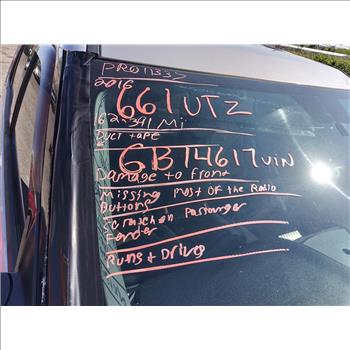 PRO11337
2016
661UTZ
62,391 Mi
Duct tape
GB14617 VIN
Damage to front
Missing most of the Radio
Buttons
Scratch on Passanger
Fender
Runs + Drives